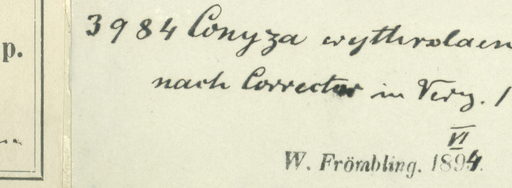 p.
3984 Conyza erythrolaen
nach Corrector in Verz. 1
VI
W. Frömbling. 1894.